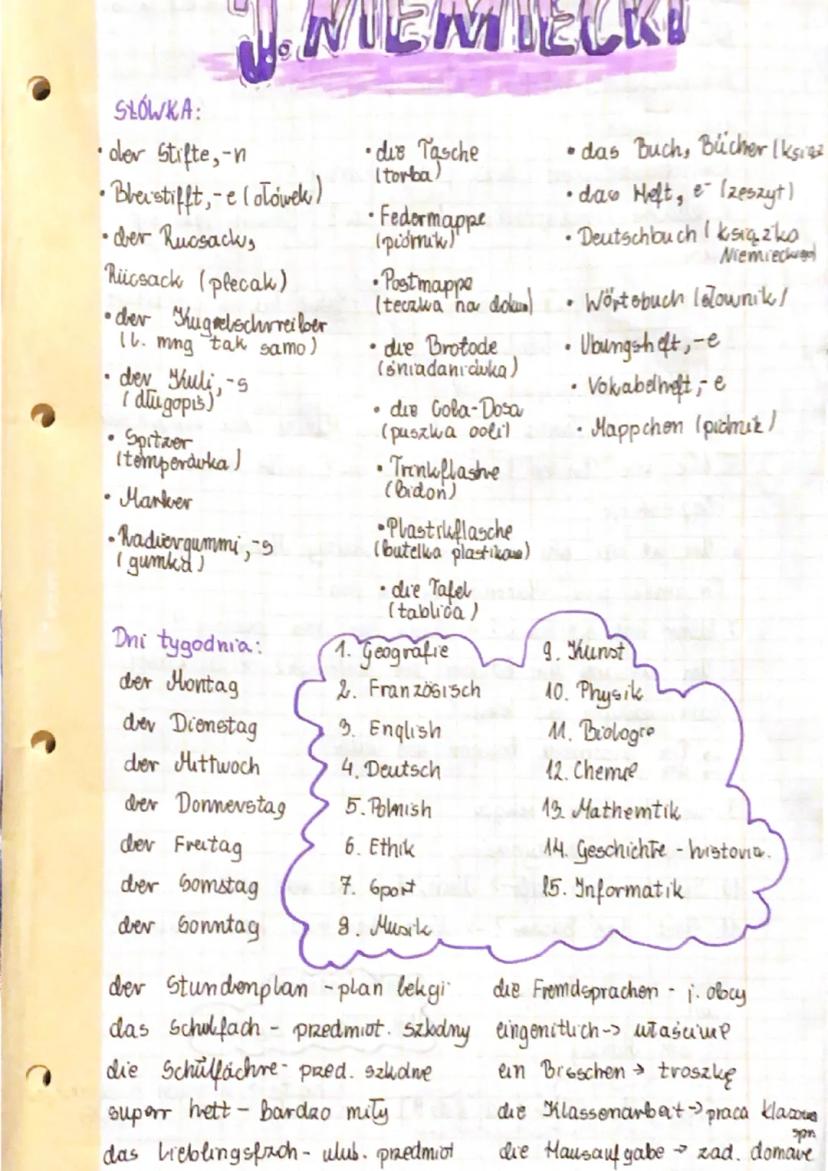 J. NIEMIECKI
SŁÓWKA:
• der Stifte, -n
• Bleistifft, -e (ołówek)
• der Rucsack,
Rücsack (plecak)
• der Kugelschreiber
(l. mng tak samo)
• der Kuli, -s
(długopis)
• Spitzer
(temperówka)
• Marker
• Radiergummi, -s
(gumka)
• die Tasche
(torba)
• Federmappe
(piórnik)
• Postmappe
(teczka na dokum)
• die Brotode
(śniadaniówka)
• die Cola-Dosa
(puszka coli)
• Trinkflashe
(bidon)
• Plastikflasche
(butelka plastikowa)
• die Tafel
(tablica)
• das Buch, Bücher (książ
• das Heft, e- (zeszyt)
• Deutschbuch (książka
Niemieckiego)
• Wörtebuch (słownik)
• Ubungsheft, -e
• Vokabelheft, -e
• Mappchen (piórnik)
Dni tygodnia:
der Montag
der Dienstag
der Mittwoch
der Donnerstag
der Freitag
der Somstag
der Sonntag
1. Geografie
2. Französisch
3. English
4. Deutsch
5. Polnish
6. Ethik
7. Sport
8. Musik
9. Kunst
10. Physik
11. Biologie
12. Chemie
13. Mathemtik
14. Geschichte - historia.
15. Informatik
der Stundenplan - plan lekcji
das Schulfach - przedmiot. szkolny
die Schülfächre - przed. szkolne
superr nett - bardzo miły
das Lieblingsfach - ulub. przedmiot
die Fremdsprachen - j. obcy
eingenitlich -> właściwie
ein Bisschen -> troszkę
die Klassenarbeit -> praca klasowa
spr
die Hausaufgabe -> zad. domowe